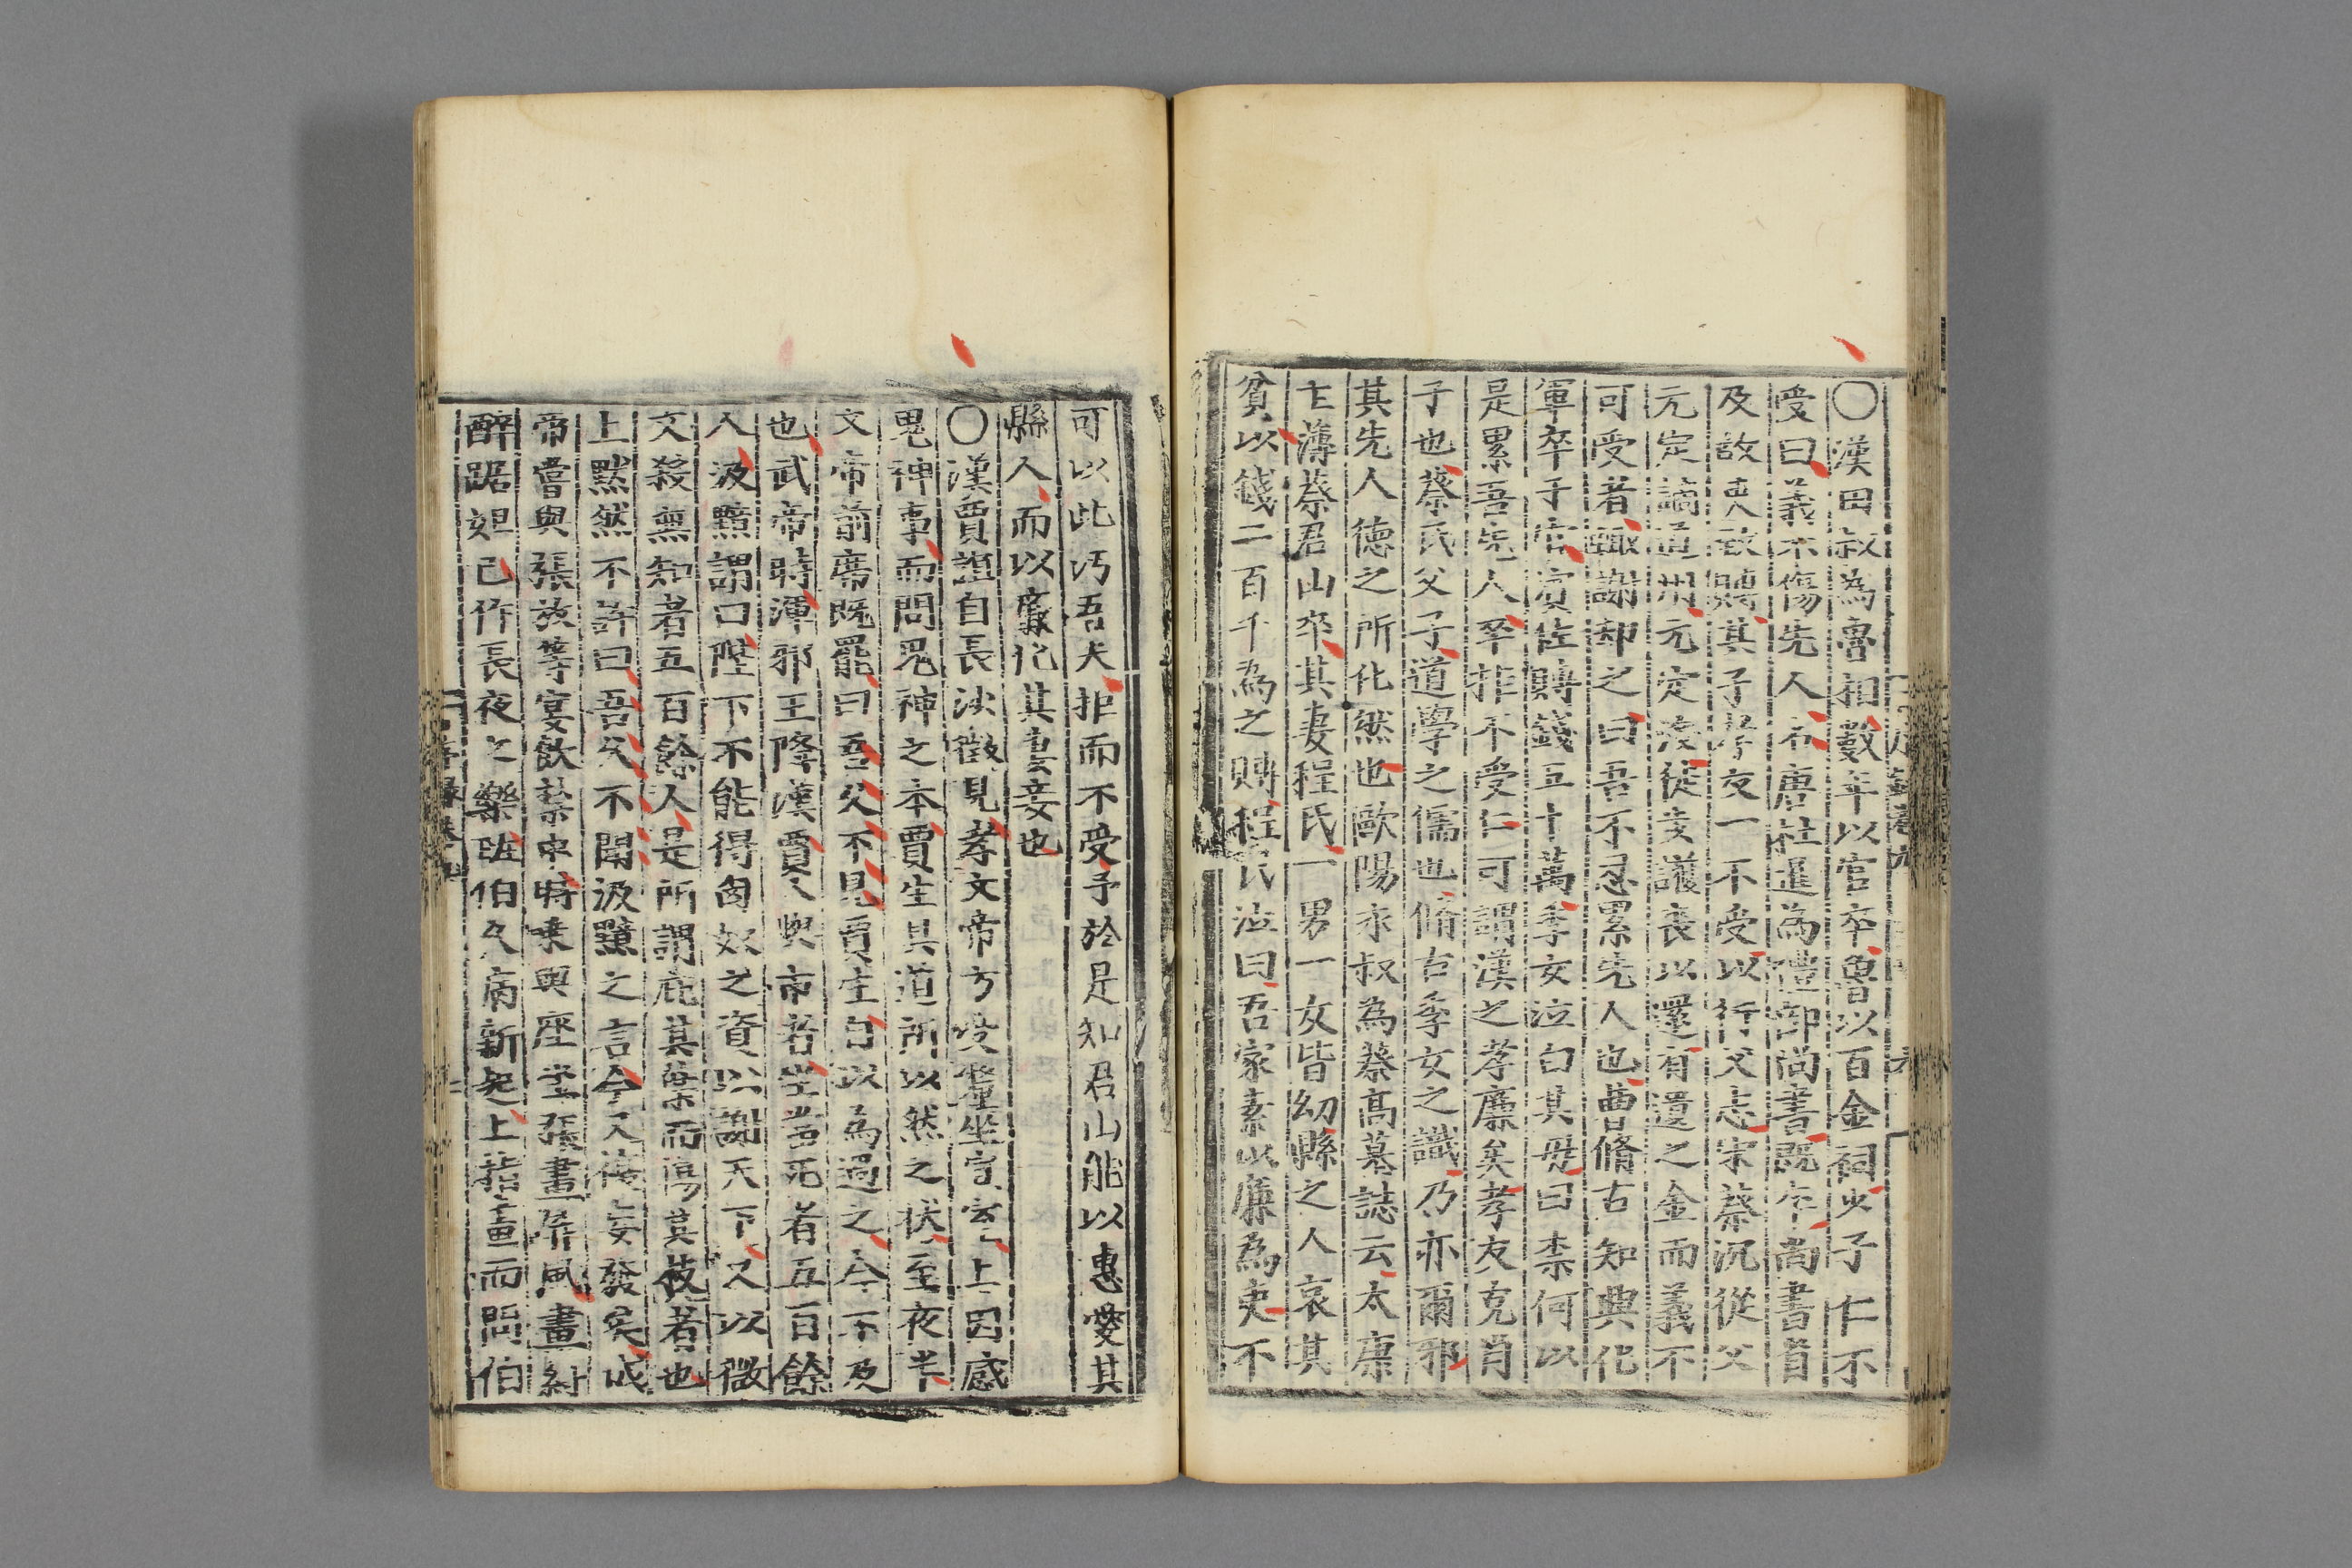 ○漢田叔為魯相數年以官卒魯以百金祠少子仁不
受曰義不傷先人名唐杜暹為禮部尚書既卒尚書省
及故吏致賻其子孝友一不受以行父志宋蔡沉從父
元定謫道州元定沒徒步護喪以還有遺之金而義不
可受者輒謝却之曰吾不忍累先人也曹脩古知興化
軍卒于官賓佐賻錢五十萬季女泣白其母曰柰何以
是累吾先人卒拒不受仁可謂漢之孝廉矣孝友克肖
子也蔡氏父子道學之儒也脩古季女之識乃亦爾邪
其先人德之所化然也歐陽永叔為蔡高墓誌云太康
主薄蔡君山卒其妻程氏一男一女皆幼縣之人哀其
貧以錢二百千為之賻程氏泣曰吾家素以廉為吏不
可以此汚吾夫拒而不受予於是知君山能以惠愛其
縣人而以廉化其妻妾也
○漢賈誼自長沙徵見孝文帝方受釐坐宣室上因感
鬼神事而問鬼神之本賈生具道所以然之狀至夜半
文帝前席既罷曰吾久不見賈生自以為過之今不及
也武帝時渾邪王降漢賈人與市者坐當死者五百餘
人汲黯謂曰陛下不能得匈奴之資以謝天下又以微
文殺無知者五百餘人是所謂庇其葉而傷其枝者也
上默然不許曰吾久不聞汲黯之言今又復妄發矣成
帝嘗與張放等宴飲禁中時乘輿座坐張畫屏風畫紂
醉踞妲己作長夜之樂班伯久病新起上指畫而問伯